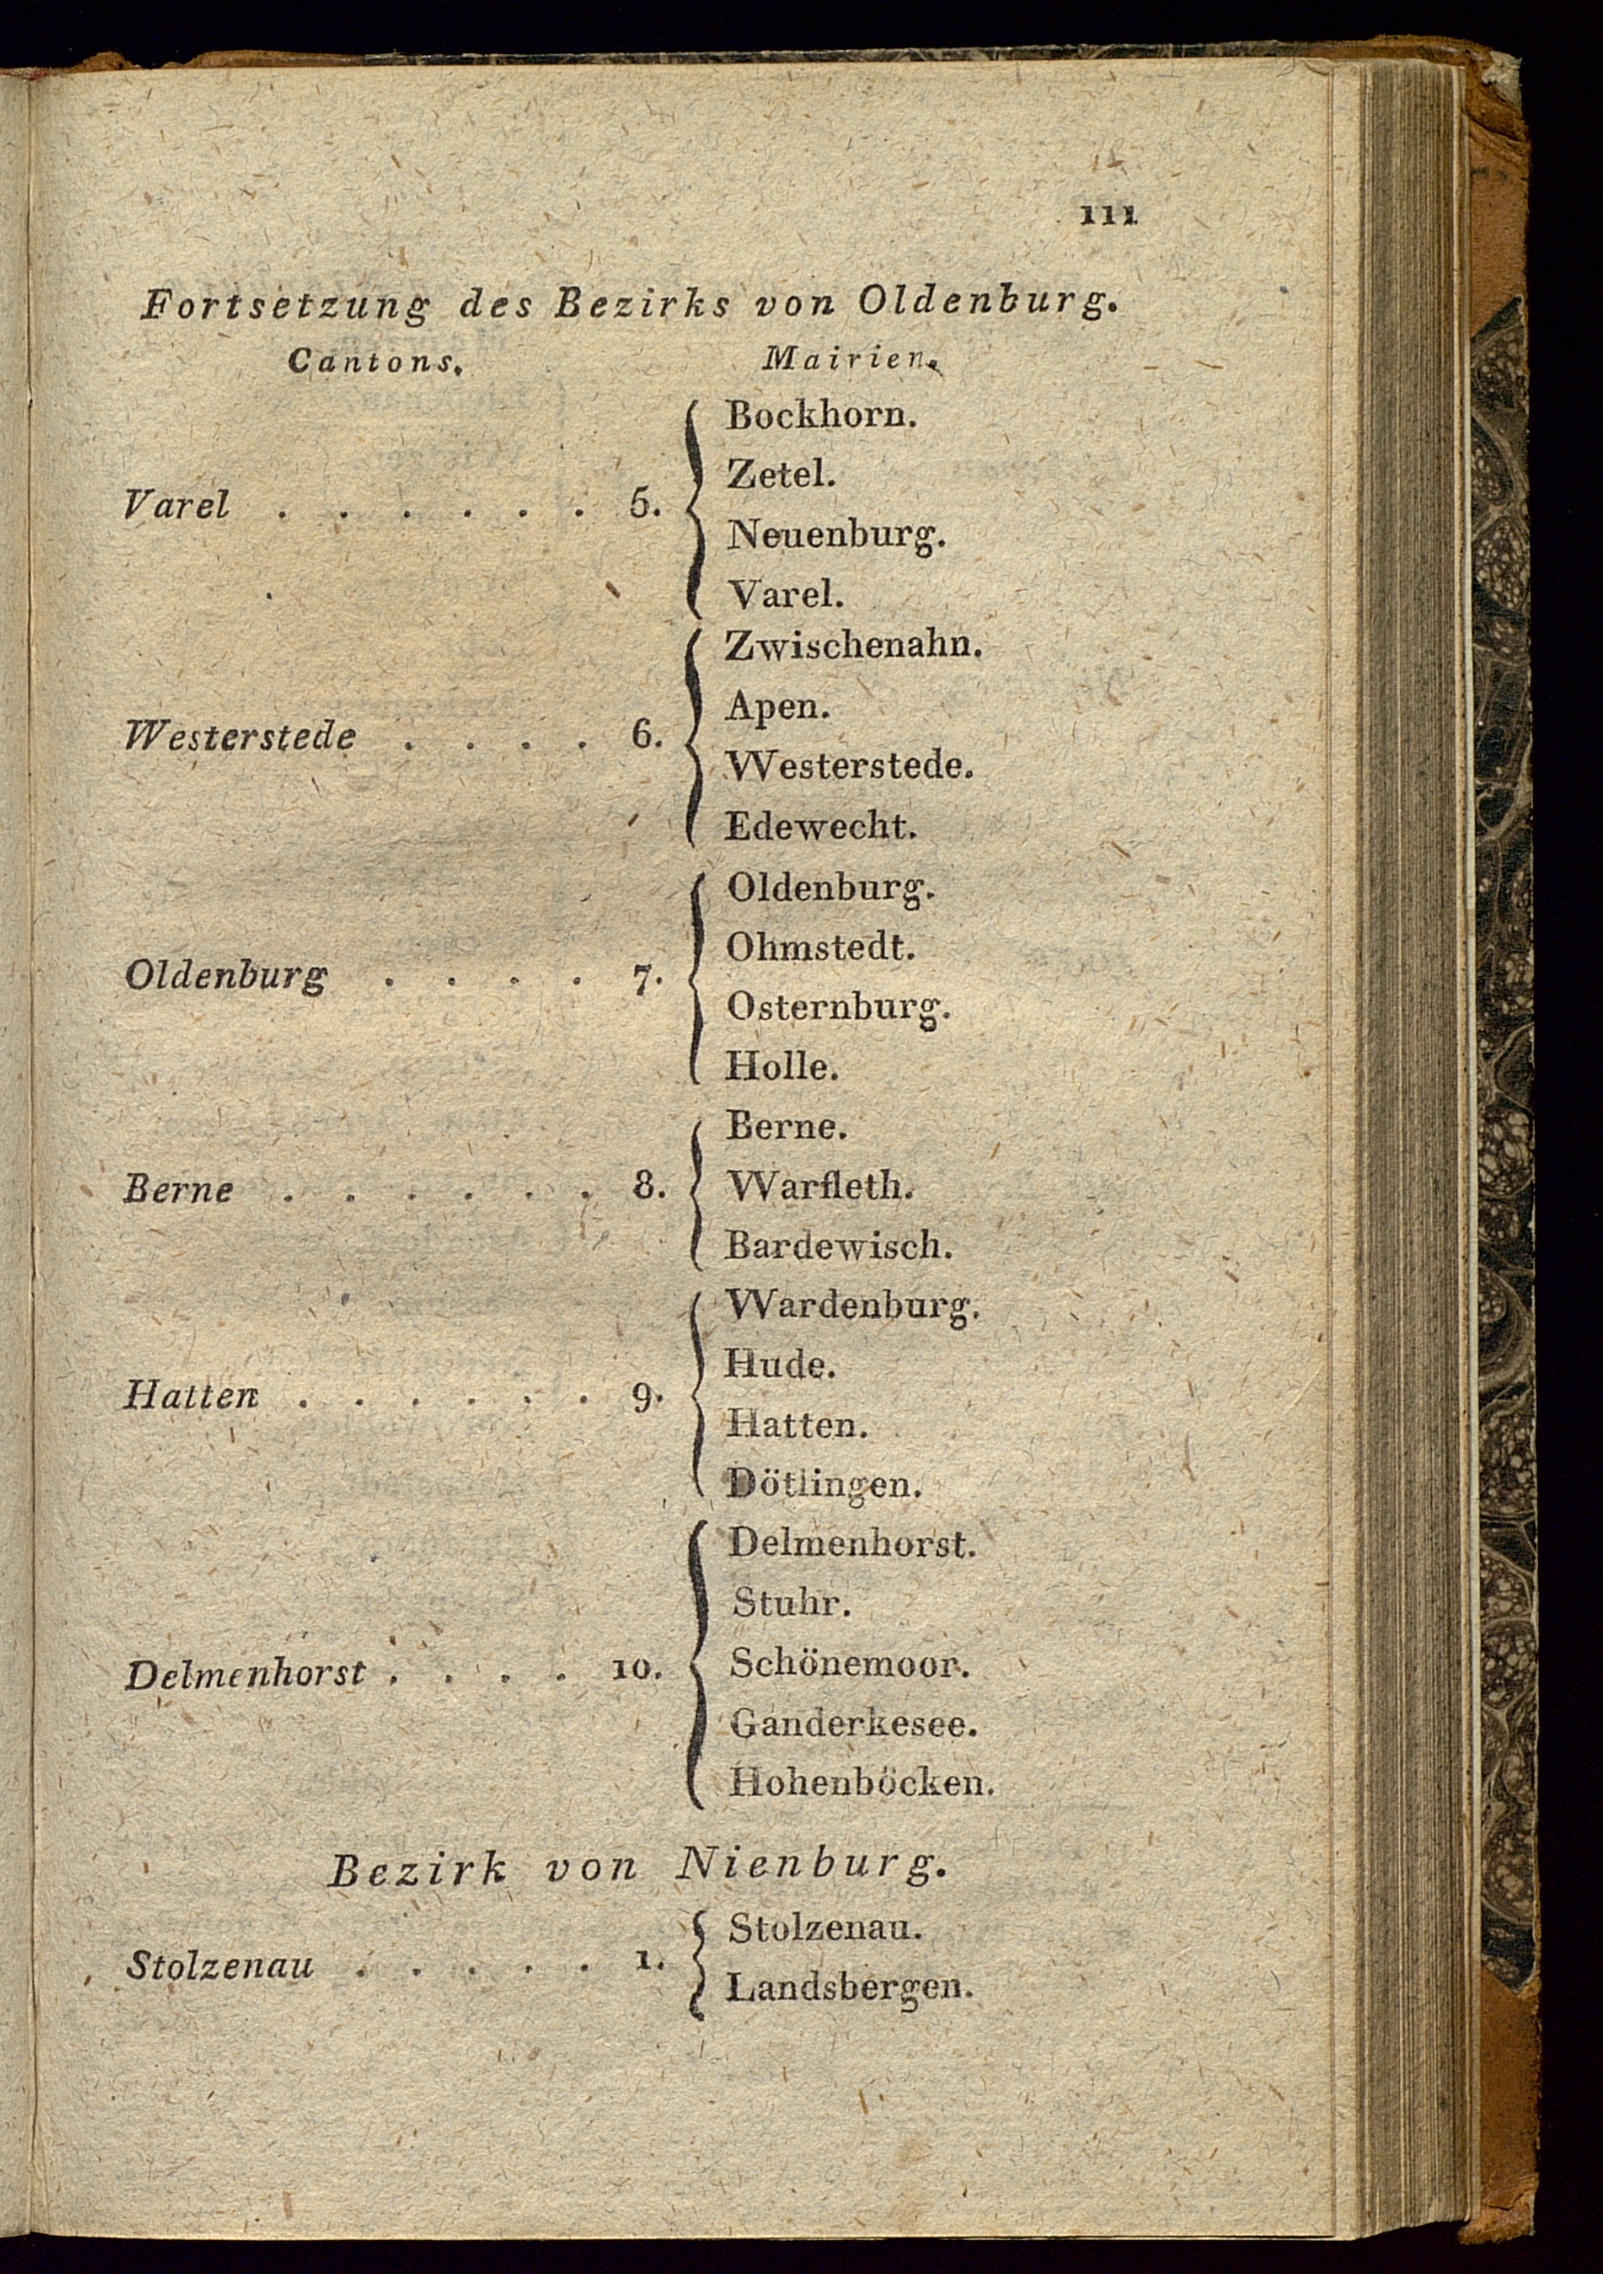 111
Fortsetzung des Bezirks von Oldenburg.
Cantons. Mairien.
Bockhorn.
Zetel.
Varel . . . . . . 5.
Neuenburg.
Varel.
Zwischenahn.
Apen.
Westerstede . . . . 6.
Westerstede.
Edewecht.
Oldenburg.
Ohmstedt.
Oldenburg . . . . 7.
Osternburg.
Holle.
Berne.
Berne . . . . . . 8. Warfleth.
Bardewisch.
Wardenburg.
Hude.
Hatten . . . . . . 9.
Hatten.
Dötlingen.
Delmenhorst.
Stuhr.
Delmenhorst . . . . 10. Schönemoor.
Ganderkesee.
Hohenböcken.
Bezirk von Nienburg.
Stolzenau.
Stolzenau . . . . . 1.
Landsbergen.